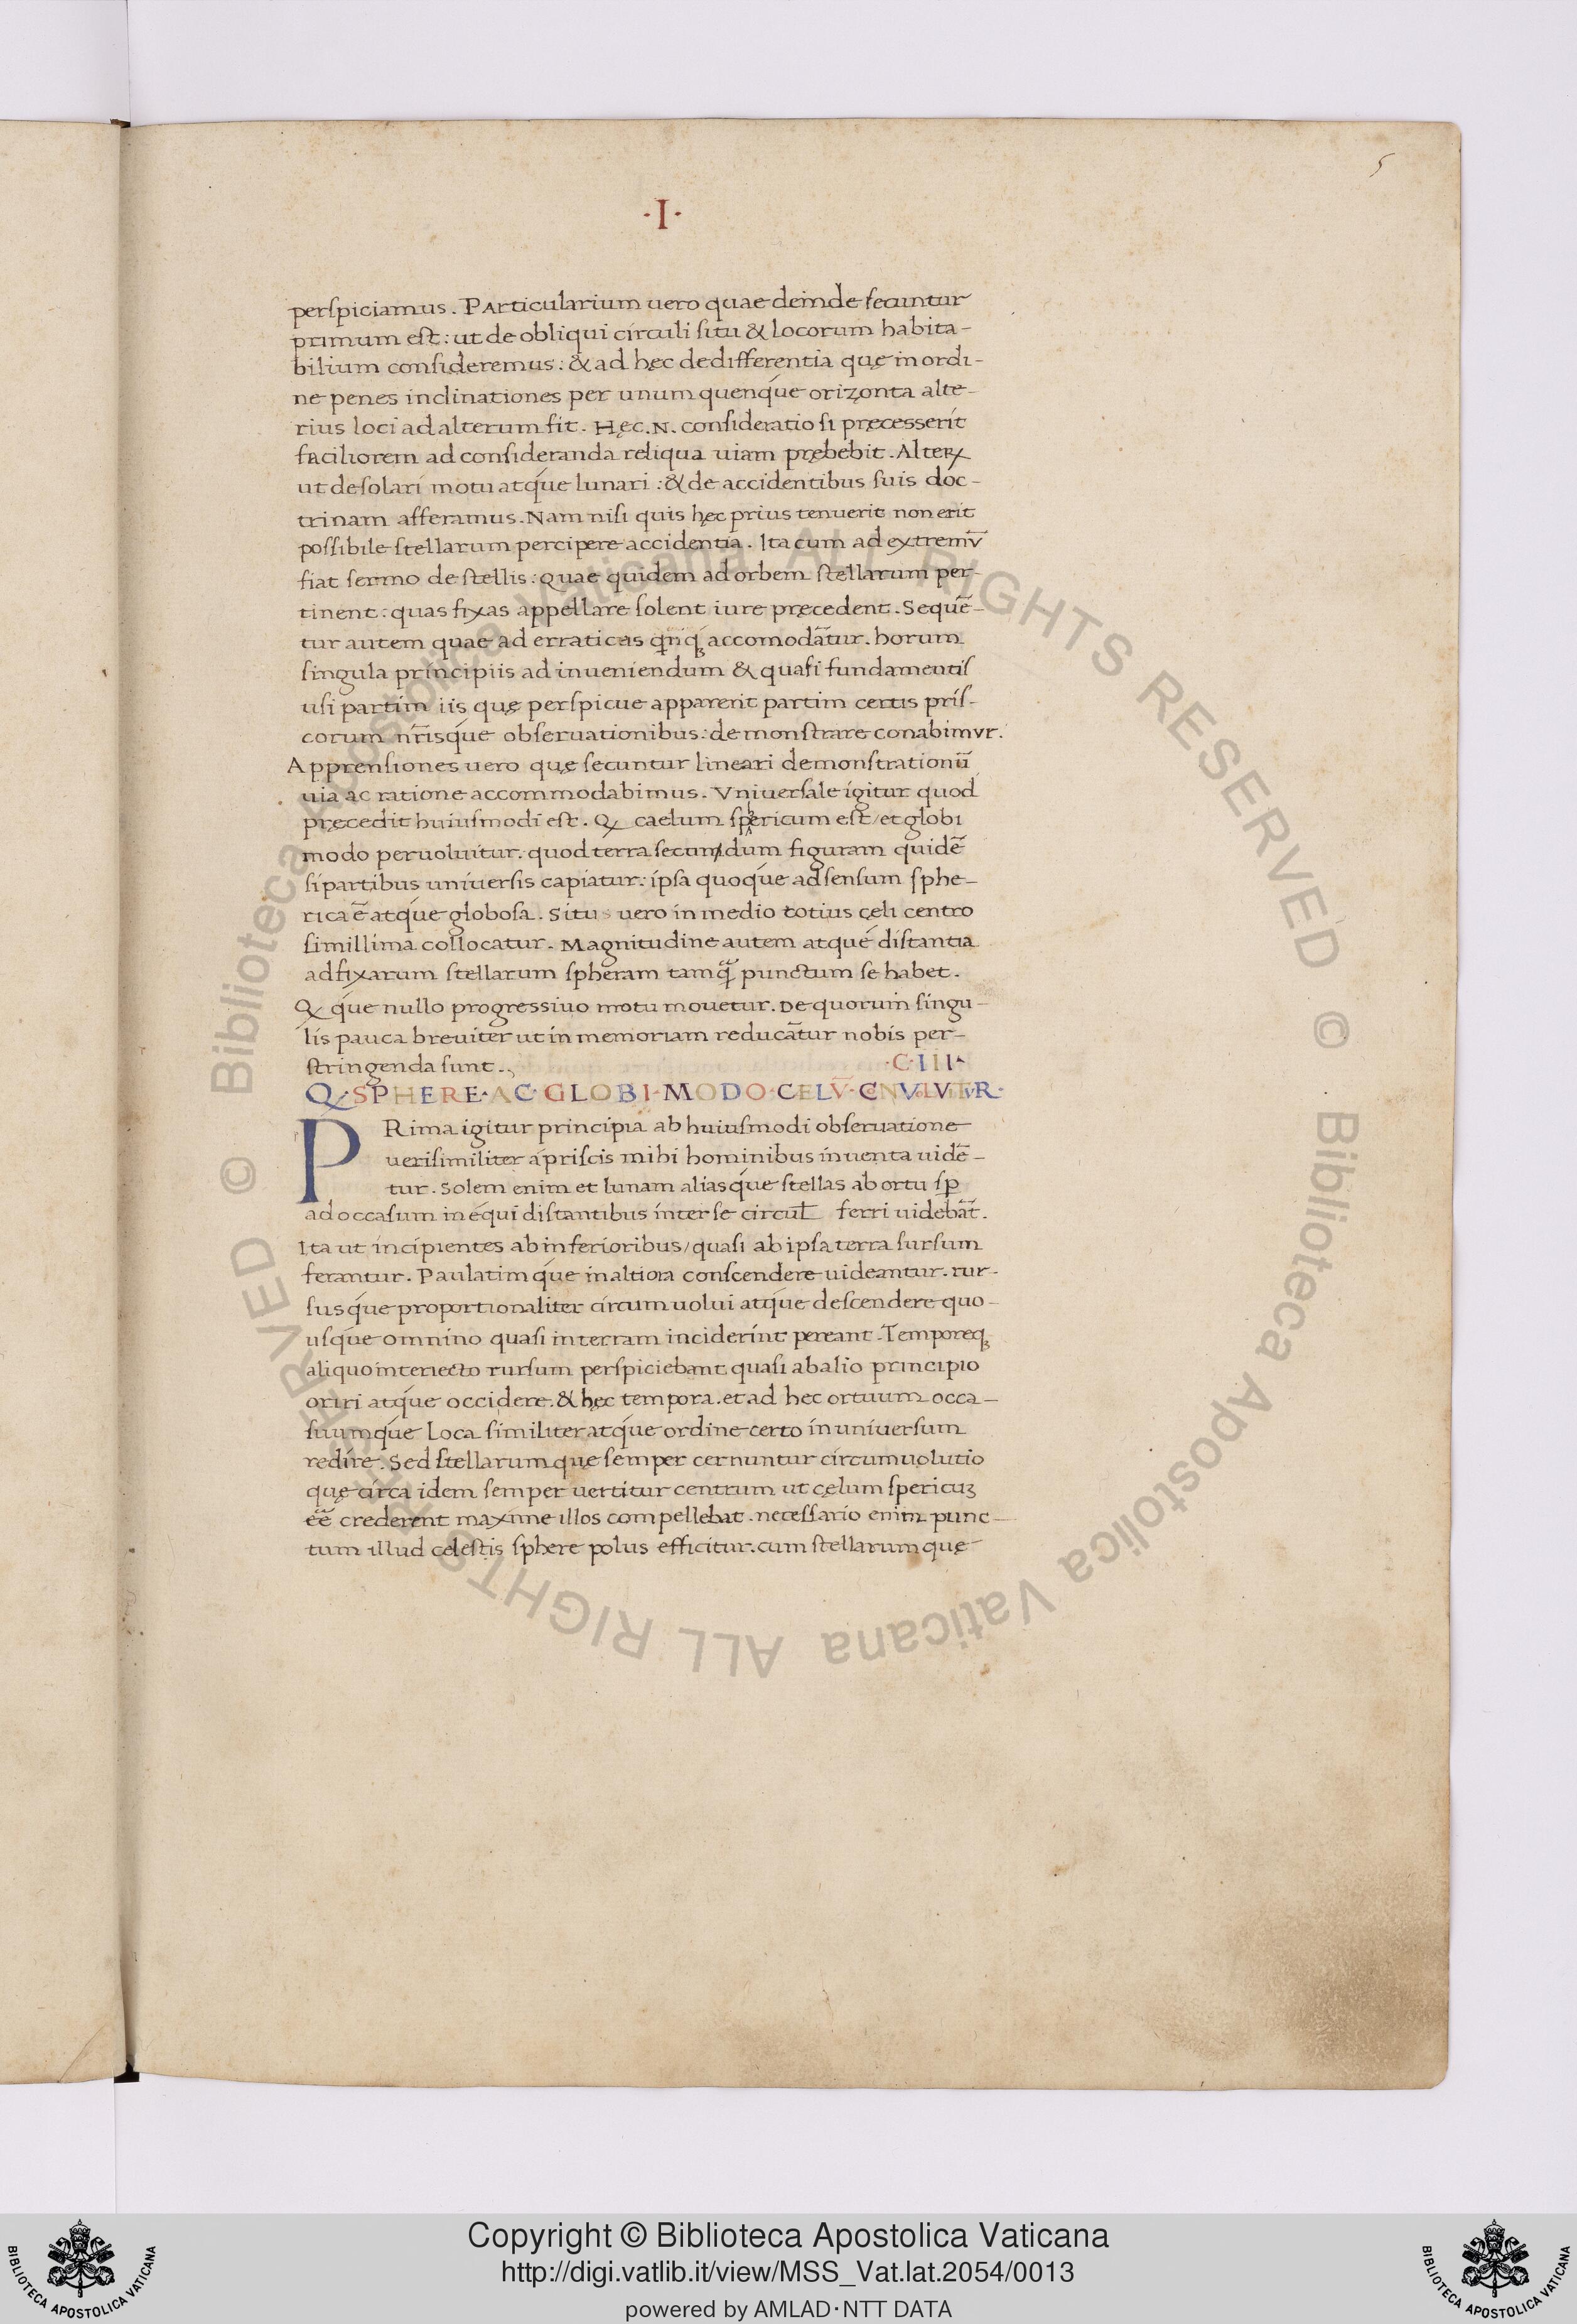 5
·I·
perſpiciamus. PArticularium uero quae deinde ſecuntur
primum eſt: ut de obliqui circuli ſitu & locorum habita-
bilium conſideremus: & ad hęc de differentia quę in ordi-
ne penes inclinationes per unum quenq́ue orizonta alte-
rius loci ad alterum fit. Hęc .N. conſideratio ſi pręcesserit
faciliorem ad conſideranda reliqua uiam prębebit. Alteꝝ
ut de ſolari motu atq́ue lunari: & de accidentibus ſuis doc-
trinam afferamus. Nam niſi quis hęc prius tenuerit non erit
poſſibile ſtellarum percipere accidentia. Ita cum ad extremū
fiat ſermo de ſtellis: Quae quidem ad orbem ſtellarum per-
tinent: quas fixas appellare ſolent iure pręcedent. Sequē-
tur autem quae ad erraticas qnqꝫ accomodātur. horum
ſingula principiis ad inueniendum & quaſi fundamentiſ
uſi partim iis quę perſpicue apparent partim certis priſ-
corum nr̄isq́ue obſeruationibus: demonſtrare conabimvr.
Apprenſiones uero quę ſecuntur lineari demonſtrationū
uia ac ratione accommodabimus. Vniuerſale igitur quod
pręcedit huiuſmodi eſt. Qꝫ caelum ſphericum eſt/ et globi
modo peruoluitur. quod terra ſecundum figuram quidē
ſi partibus uniuerſis capiatur: ipſa quoq́ue ad ſenſum ſphe-
rica ē atq́ue globoſa. Situ uero in medio totius cęli centro
ſimillima collocatur. Magnitudine autem atqué diſtantia
ad fixarum ſtellarum ſpheram tamq̄ punctum ſe habet.
Qꝫ q́ue nullo progressiuo motu mouetur. De quorum ſingu-
lis pauca breuiter ut in memoriam reducātur nobis per-
ſtringenda ſunt.
·C·III·
Q·SPHERE·AC·GLOBI·MODO·CELV̄·CNVOLVITVR·
PRima igitur principia ab huiuſmodi obſeruatione
ueriſimiliter a priſcis mihi hominibus inuenta uidē-
tur. Solem enim et lunam aliasq́ue ſtellas ab ortu ſꝑ
ad occaſum in ęqui diſtantibus inter ſe circul̄ ferri uidebāt.
Ita ut incipientes ab inferioribus/ quaſi ab ipſa terra ſurſum
ferantur. Paulatimq́ue in altiora conſcendere uideantur. rur-
ſusq́ue proportionaliter circumuolui atq́ue deſcendere quo-
uſq́ue omnino quaſi in terram inciderint pereant. Temporeqꝫ
aliquo interiecto rurſum perſpiciebant quaſi ab alio principio
oriri atq́ue occidere. & hęc tempora. et ad hec ortuum occa-
ſuumq́ue loca ſimiliter atq́ue ordine certo in uniuerſum
redire. Sed ſtellarum que ſemper cernuntur circumuolutio
quę circa idem ſemper uertitur centrum ut cęlum ſpericuꝫ
ēē crederent maxime illos compellebat. neceſſario enim punc-
tum illud celeſtis ſphere polus efficitur. cum ſtellarum quę
© Biblioteca Apostolica Vaticana ALL RIGHTS RESERVED © Biblioteca Apostolica Vaticana ALL RIGHTS RESERVED
Copyright © Biblioteca Apostolica Vaticana
http://digi.vatlib.it/view/MSS_Vat.lat.2054/0013
powered by AMLAD·NTT DATA
BIBLIOTECA APOSTOLICA VATICANA
BIBLIOTECA APOSTOLICA VATICANA